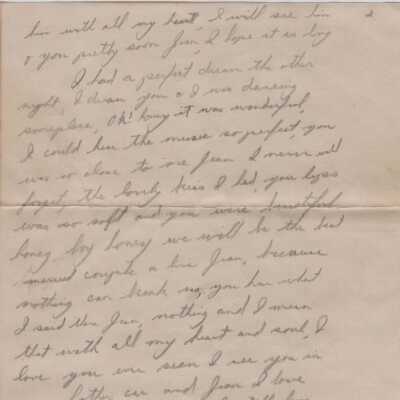 2
him with all my heart, I will see him
& you pretty soon Jean, I hope it is long
I had a perfect dream the other
night, I dream you & I was dancing
someplace, Oh! honey it was wonderful,
I could hear the music so perfect, you
was so close to me Jean I never will
forget, the lovely kiss I had, your lips
was so soft and you were beautiful
honey, boy honey we will be the best
married couple a live Jean, because
nothing can break us, you hear what
I said the Jean, nothing and I mean
that with all my heart and soul, I
love you ever seen I see you in
father car and Jean I love